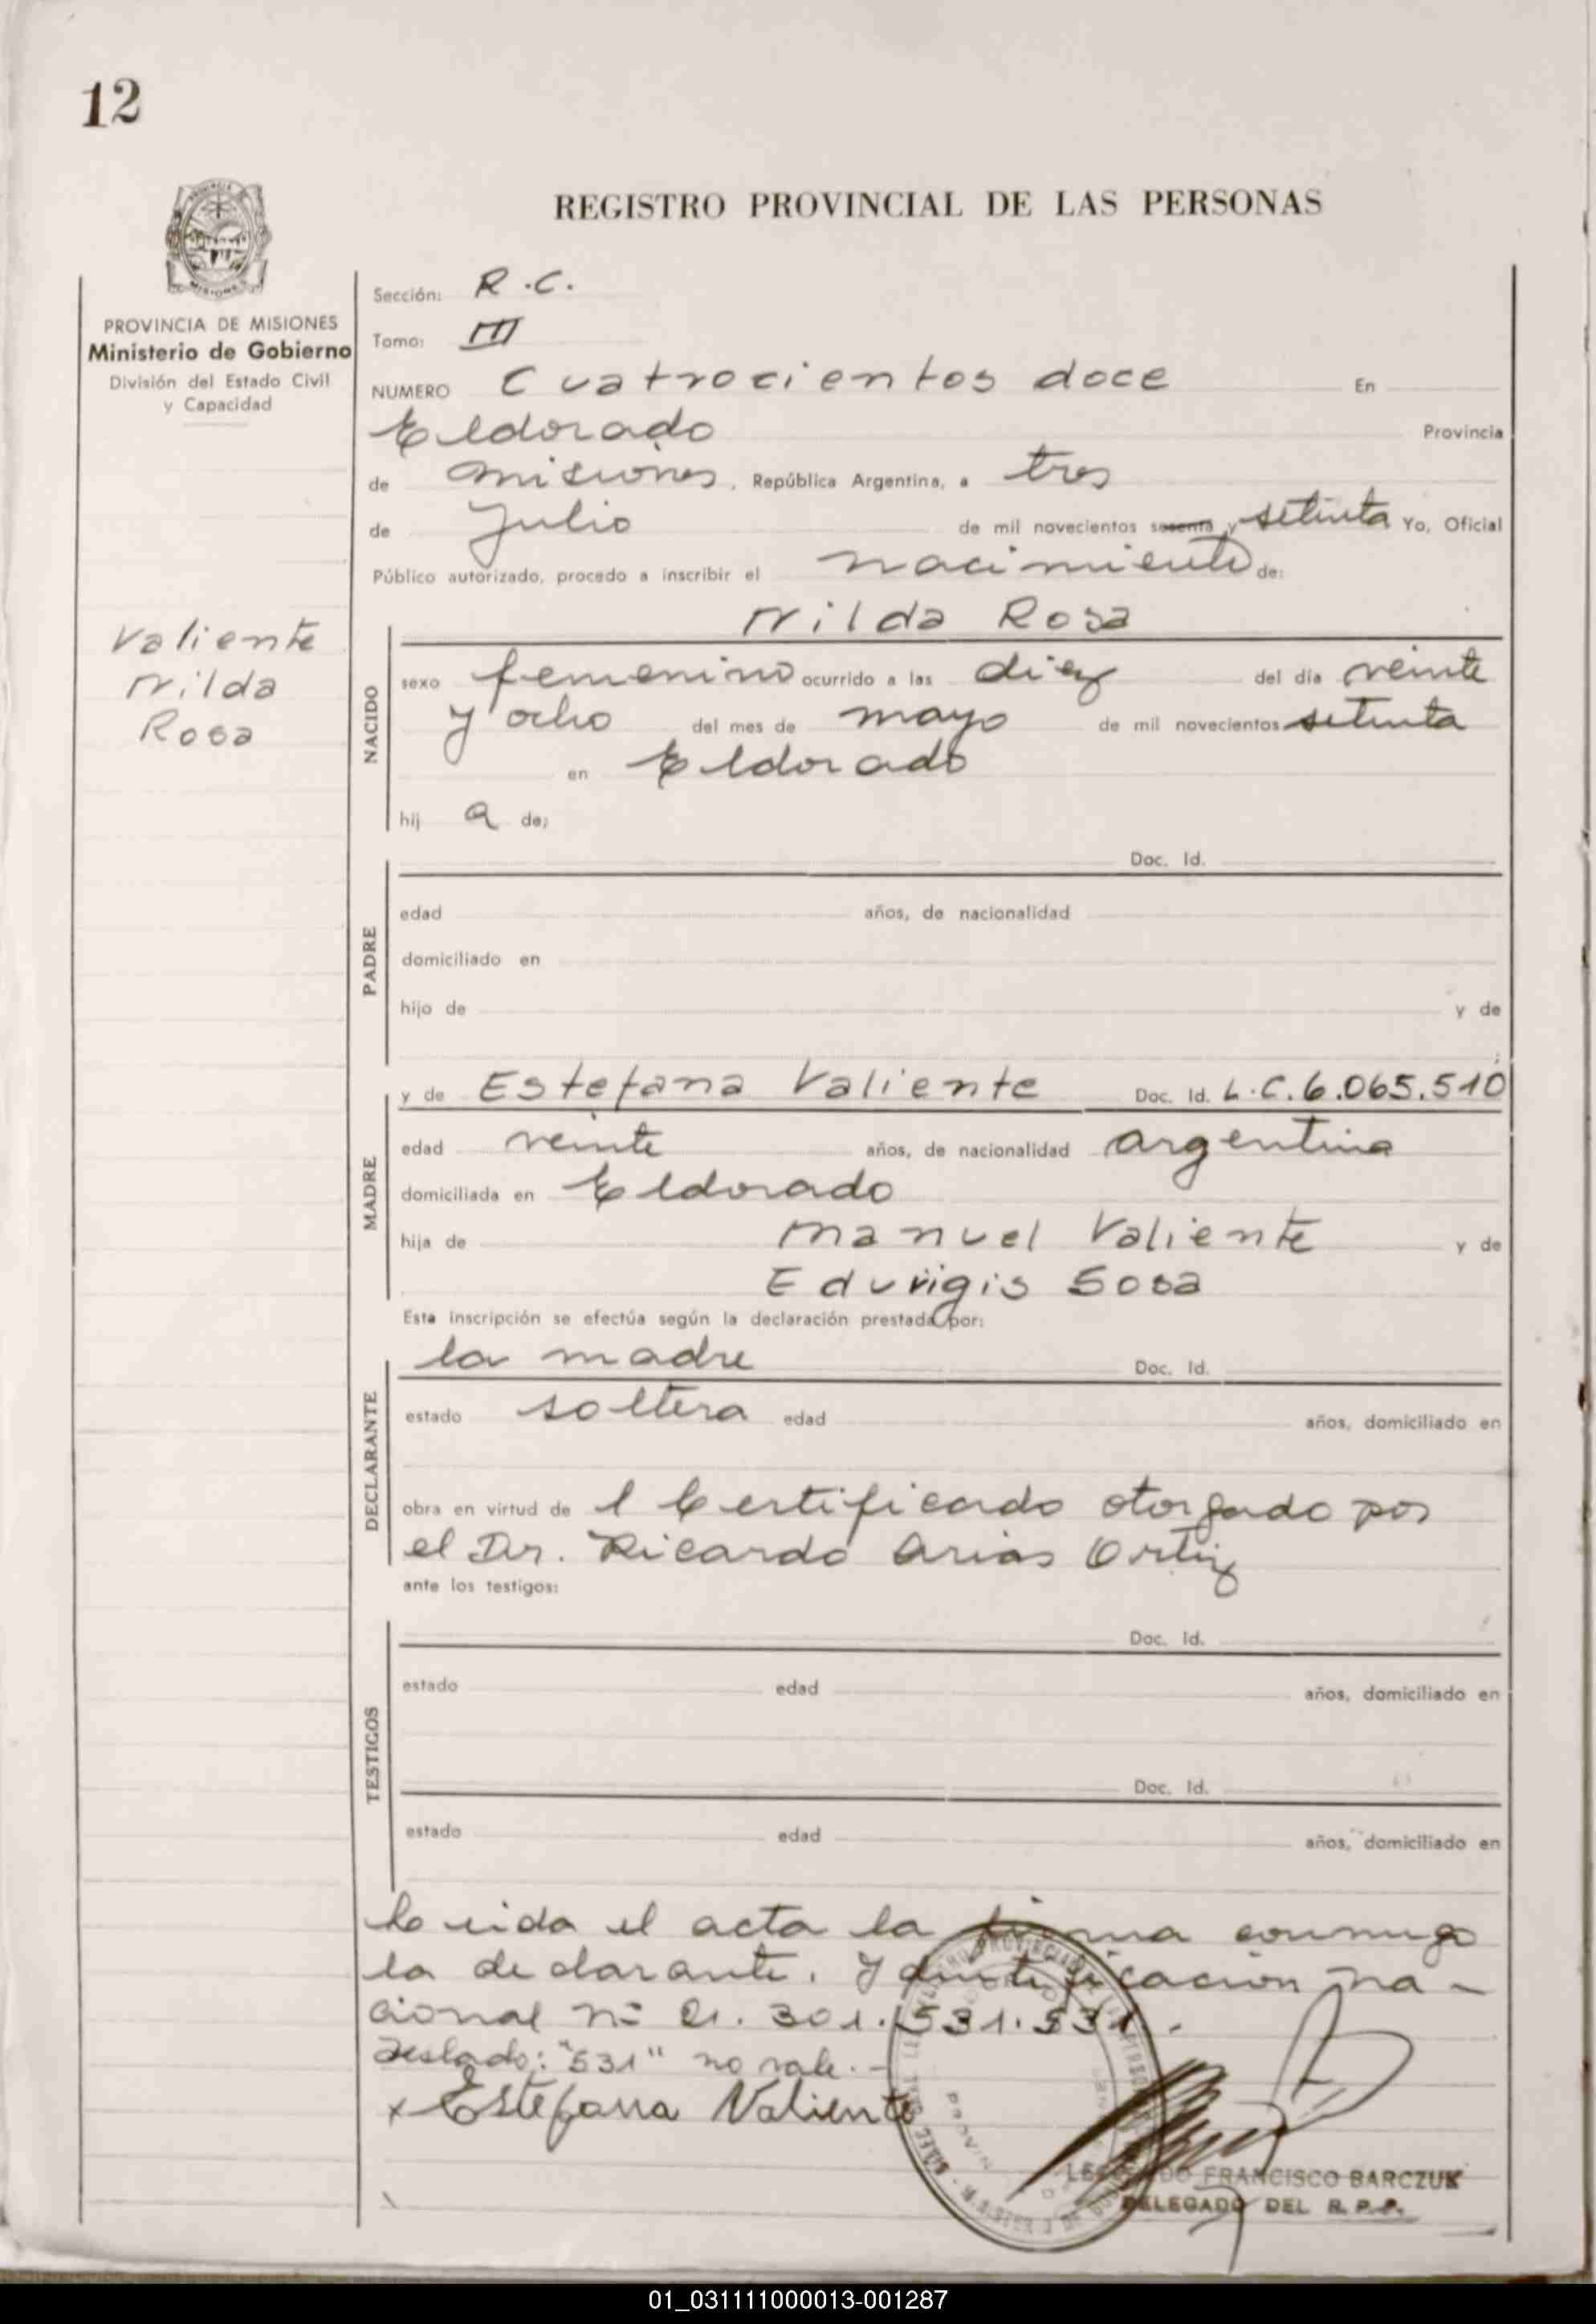 12
REGISTRO PROVINCIAL DE LAS PERSONAS
PROVINCIA DE MISIONES
Ministerio de Gobierno
División del Estado Civil
y Capacidad
Valiente
Nilda
Rosa
Sección: R.C.
Tomo: III
NUMERO Cuatrocientos doce En
Eldorado Provincia
de Misiones, República Argentina, a tres
de Julio de mil novecientos sesenta y setenta Yo, Oficial
Público autorizado, procedo a inscribir el nacimiento de:
Nilda Rosa
NACIDO
sexo femenino ocurrido a las diez del día veinte
y ocho del mes de mayo de mil novecientos setenta
en Eldorado
hij a de;
PADRE
Doc. Id.
edad años, de nacionalidad
domiciliado en
hijo de y de
MADRE
y de Estefana Valiente Doc. Id. L.C.6.065.510
edad veinte años, de nacionalidad argentina
domiciliada en Eldorado
hija de Manuel Valiente y de
Eduvigis Sosa
Esta inscripción se efectúa según la declaración prestada por:
DECLARANTE
la madre Doc. Id.
estado soltera edad años, domiciliado en
obra en virtud de l Certificado otorgado por
el Dr. Ricardo Arias Ortiz
ante los testigos:
TESTIGOS
Doc. Id.
estado edad años, domiciliado en
Doc. Id.
estado edad años, domiciliado en
Leida el acta la firma conmigo
la declarante. Ydentificación na-
cional nº 21.301.531.531.-
Teslado: "531" no vale.-
x Estefana Valiente
FRANCISCO BARCZUK
DELEGADO DEL R.P.P.
01_031111000013-001287